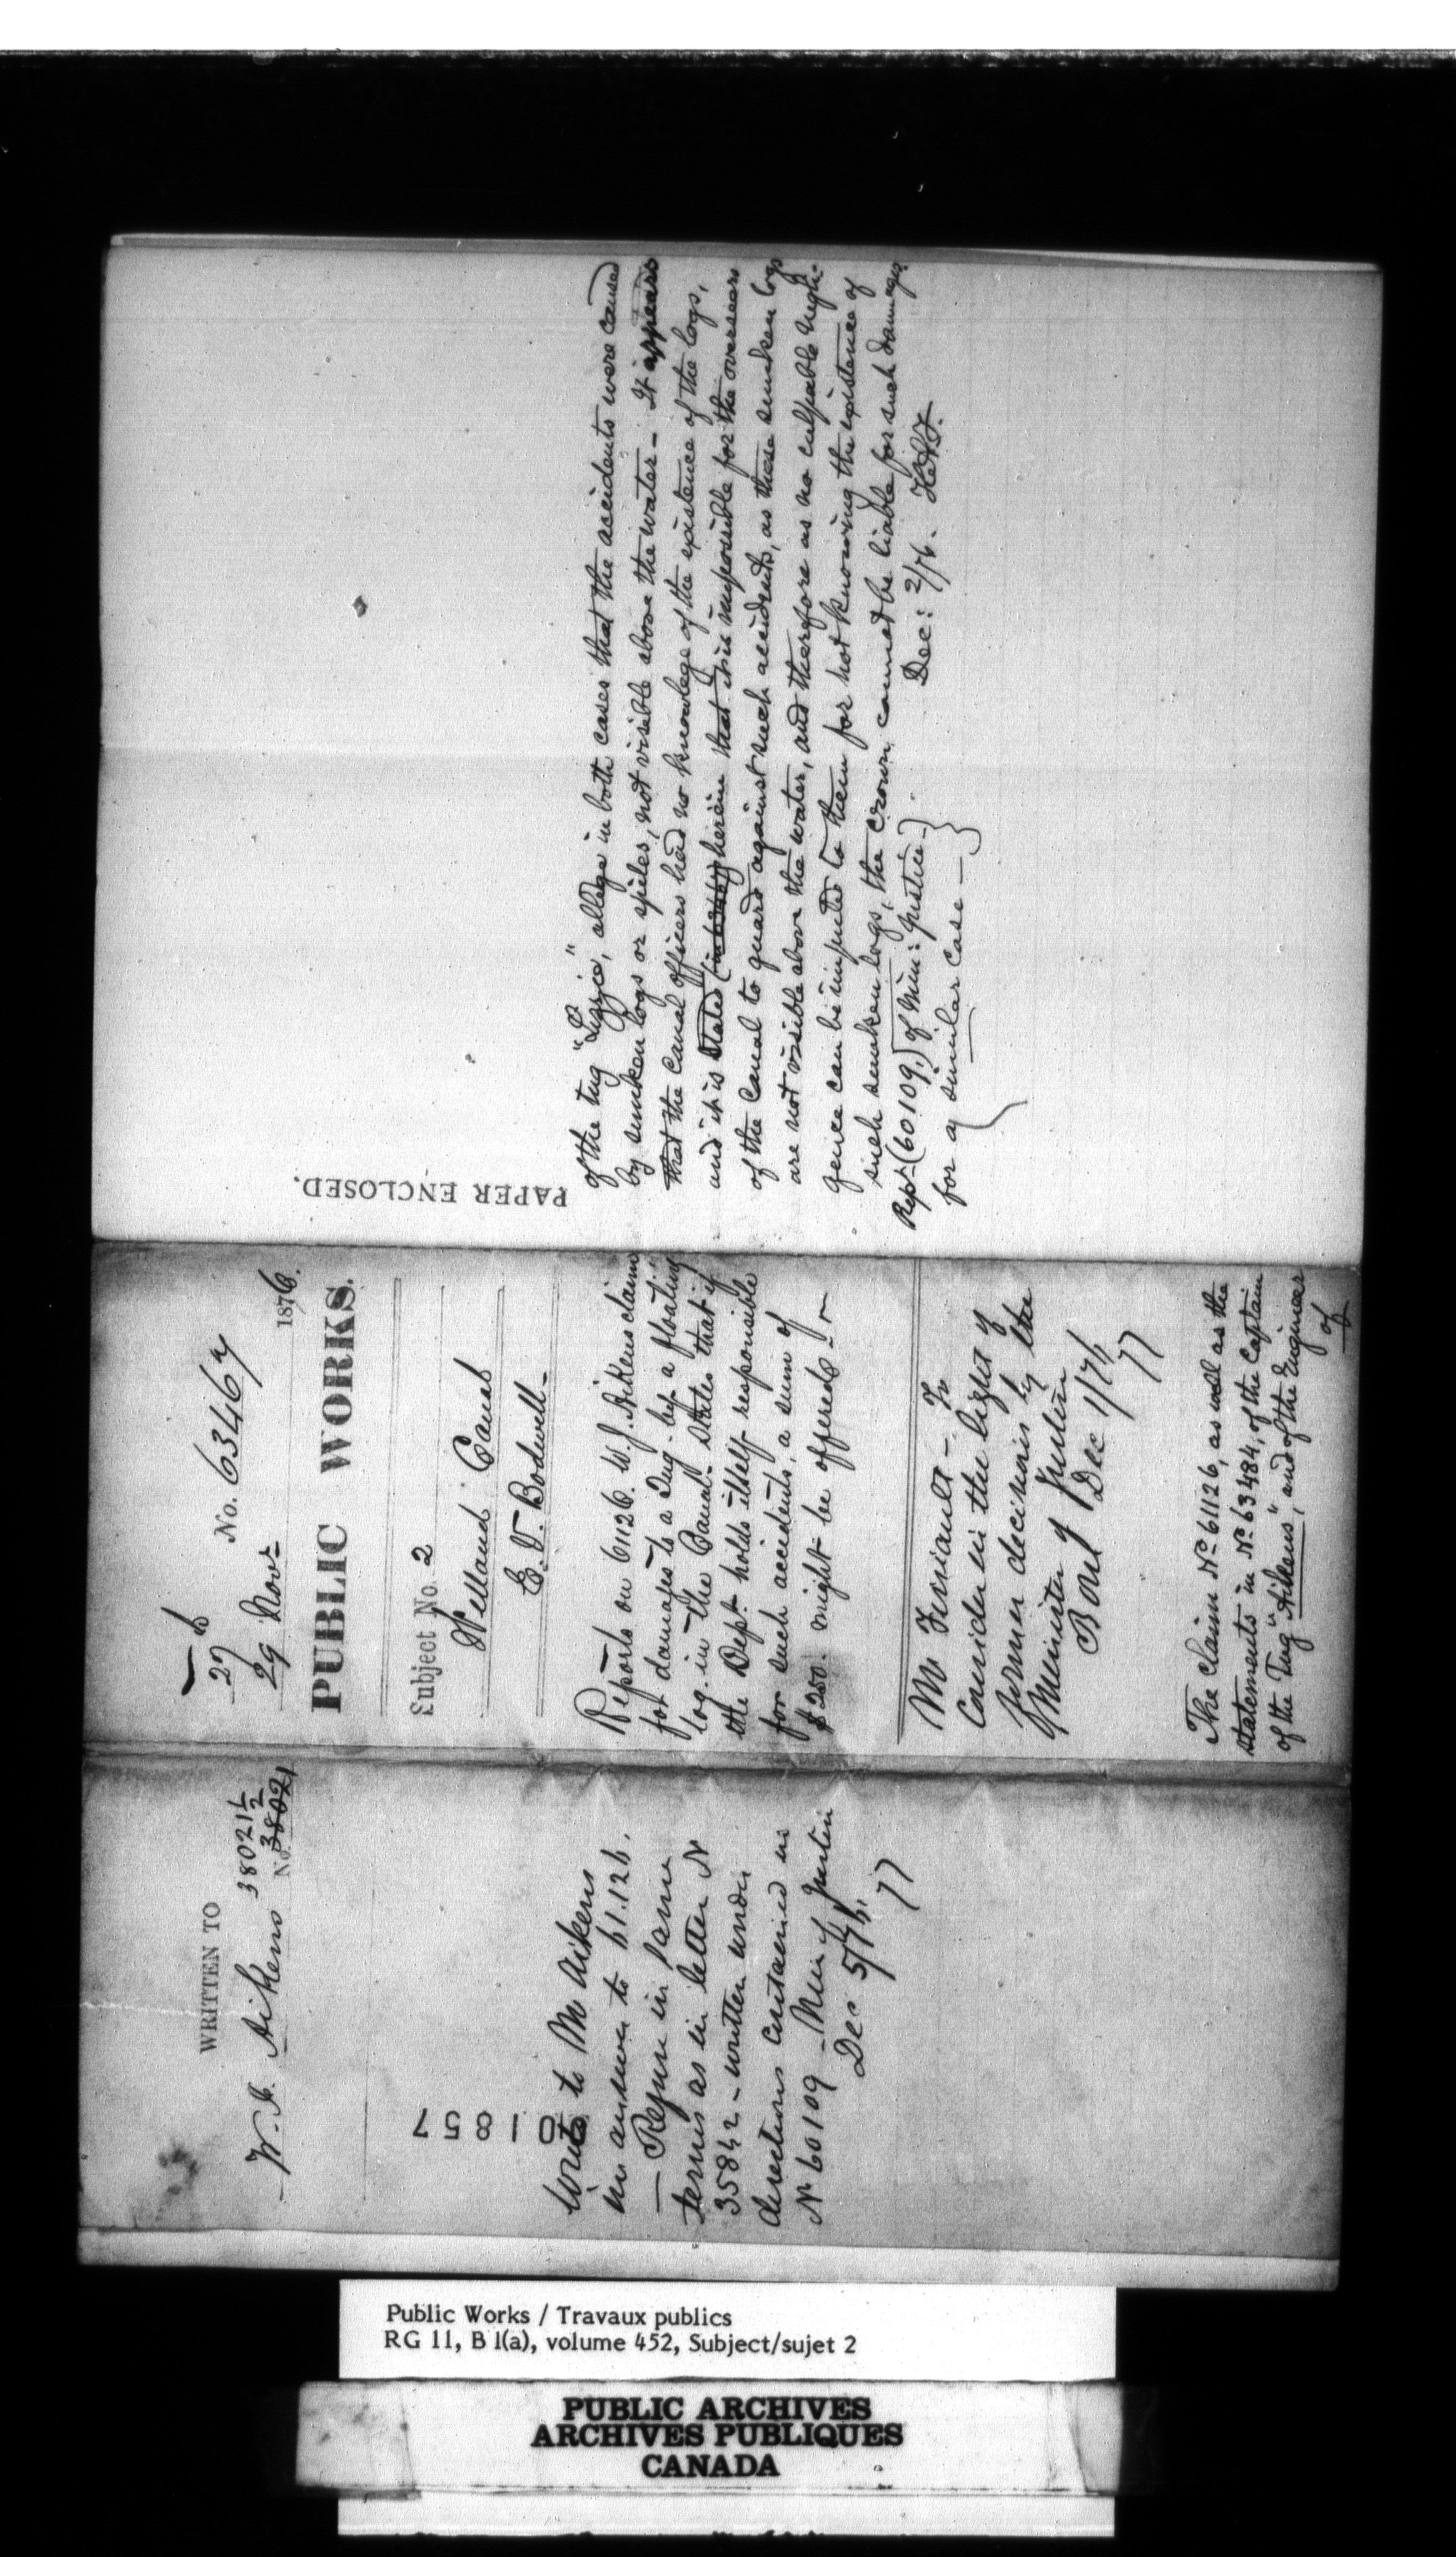 WRITTEN TO
W. J. Aikens
38021½
No. 38021
Write to Mr Aikens
in answer to 61.126.
— Refuse in same
terms as in letter No
35842 - written under
directions contained in
No 60109 - Min of Justice
Dec 5/76
77
001857
27
29 Novr
No. 63467
1876.
PUBLIC WORKS.
Subject No. 2
Welland Canal
E. V. Bodwell -
Reports on 61126. W. J. Aikens claim
for damages to a Tug - by a floating
log in the Canal - States that if
the Dept. holds itself responsible
for such accidents, a sum of
$200. might be offered -
Mr - To
Consider in the light of
former decisions by the
Minister of Justice
Dec 1/76
77
The claim No 61126, as well as the
statements in No 63484, of the Captain
of the Tug "Aikens", and of the Engineer
of
PAPER ENCLOSED.
of the tug "Lizzie", allege in both cases that the accidents were caused
by sunken logs or spiles, not visible above the water - It appears
that the Canal officers had no knowledge of the existence of the logs,
and it is stated (in 63467) herein that it is impossible for the overseers
of the Canal to guard against such accidents, as these sunken logs
are not visible above the water, and therefore as no culpable negli-
gence can be imputed to them for not knowing the existence of
such sunken logs, the Crown cannot be liable for such damages
Rept (60109) of Min: Justice -
for a similar case -
Dec: 2/76.
Public Works / Travaux publics
RG 11, B 1(a), volume 452, Subject/sujet 2
PUBLIC ARCHIVES
ARCHIVES PUBLIQUES
CANADA